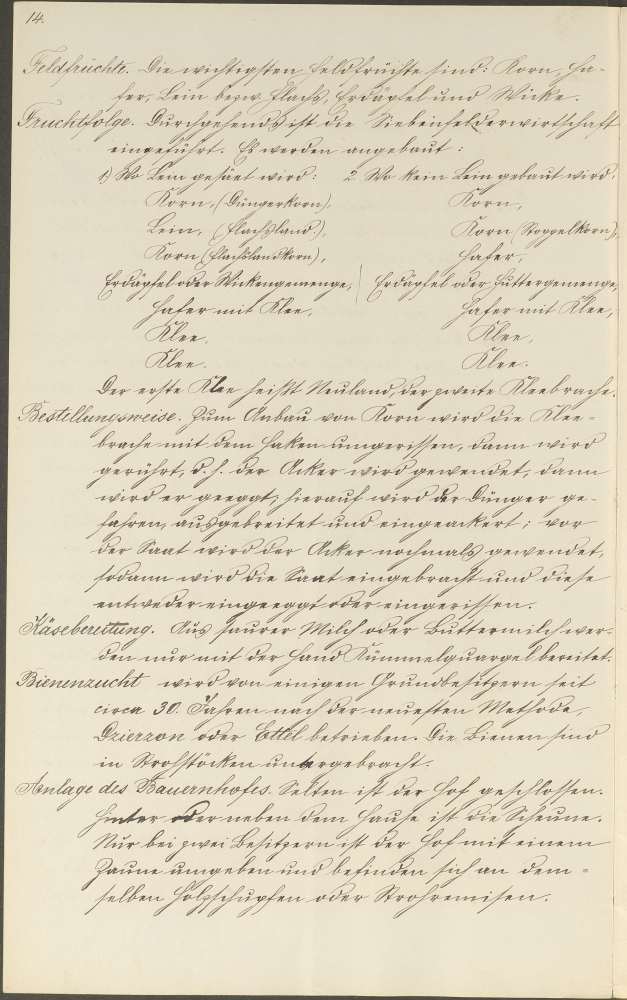 14.
Feldfrüchte. Die wichtigsten Feldfrüchte sind: Korn, Ha-
fer, Lein bezw. Flachs, Erdäpfel und Wicke.
Fruchtfolge. Durchgehends ist die Siebenfelderwirtschaft
eingeführt. Es werden angebaut:
1) Wo Lein gesäet wird: 2. Wo kein Lein gebaut wird:
Korn, (Düngerkorn), Korn,
Lein, (Flachsland), Korn (Stoppelkorn),
Korn (Flachslandkorn), Hafer,
Erdäpfel oder Wickengemenge, Erdäpfel oder Futtergemenge,
Hafer mit Klee, Hafer mit Klee,
Klee, Klee,
Klee. Klee.
Der erste Klee heißt Neuland, der zweite Kleebrache.
Bestellungsweise. Zum Anbau von Korn wird die Klee-
brache mit dem Haken umgerissen, dann wird
gerührt, d. h. der Acker wird gewendet, dann
wird er geeggt; hierauf wird der Dünger ge-
fahren, ausgebreitet und eingeackert; vor
der Saat wird der Acker nochmals gewendet,
sodann wird die Saat eingebracht und diese
entweder eingeeggt oder eingerissen.
Käsebereitung. Aus saurer Milch oder Buttermilch wer-
den nur mit der Hand Kümmelquargel bereitet.
Bienenzucht wird von einigen Grundbesitzern seit
circa 30. Jahren nach der neuesten Methode,
Dzierzon oder Ettel betrieben. Die Bienen sind
in Strohstöcken untergebracht.
Anlage des Bauernhofes. Selten ist der Hof geschlossen.
Hinter oder neben dem Hause ist die Scheune.
Nur bei zwei Besitzern ist der Hof mit einem
Zaune umgeben und befinden sich an dem-
selben Holzschupfen oder Strohremisen.